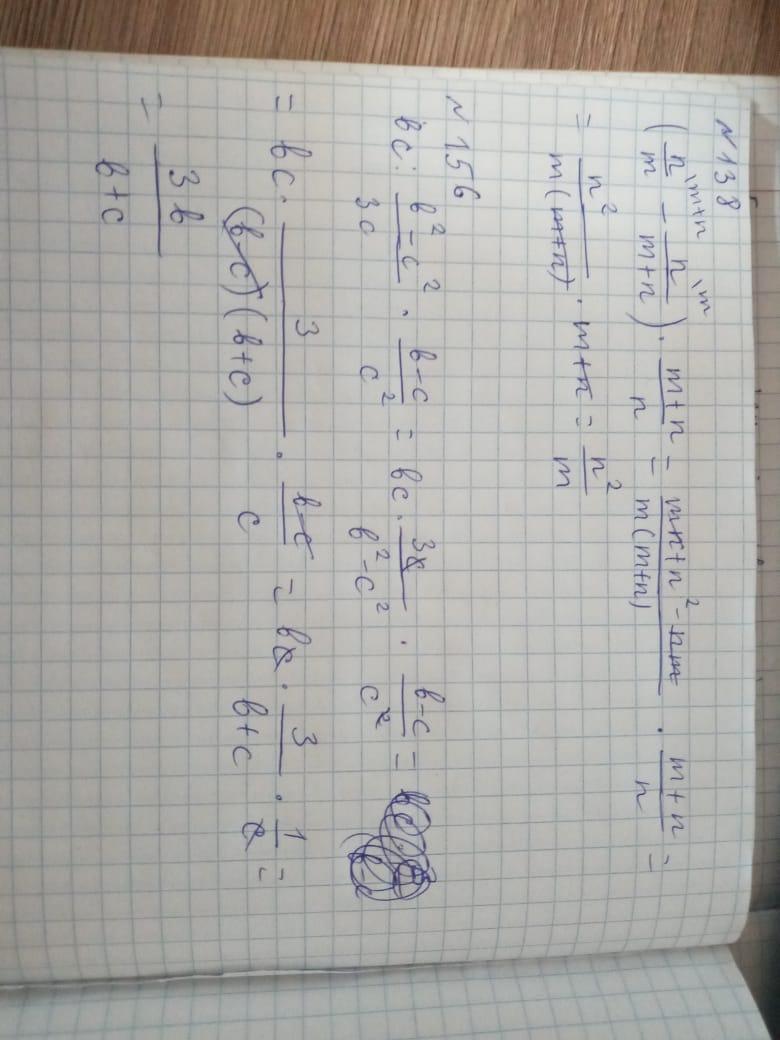 N 138
(n/m \m+n - n/m+n \m) · m+n/n = mn+n²-nm/m(m+n) · m+n/n =
= n²/m(m+n) · m+n = n²/m
N 156
bc : b²-c²/3c · b-c/c² = bc · 3c/b²-c² · b-c/c² =
= bc · 3/(b-c)(b+c) · b-c/c = bc · 3/b+c · 1/c =
= 3b/b+c